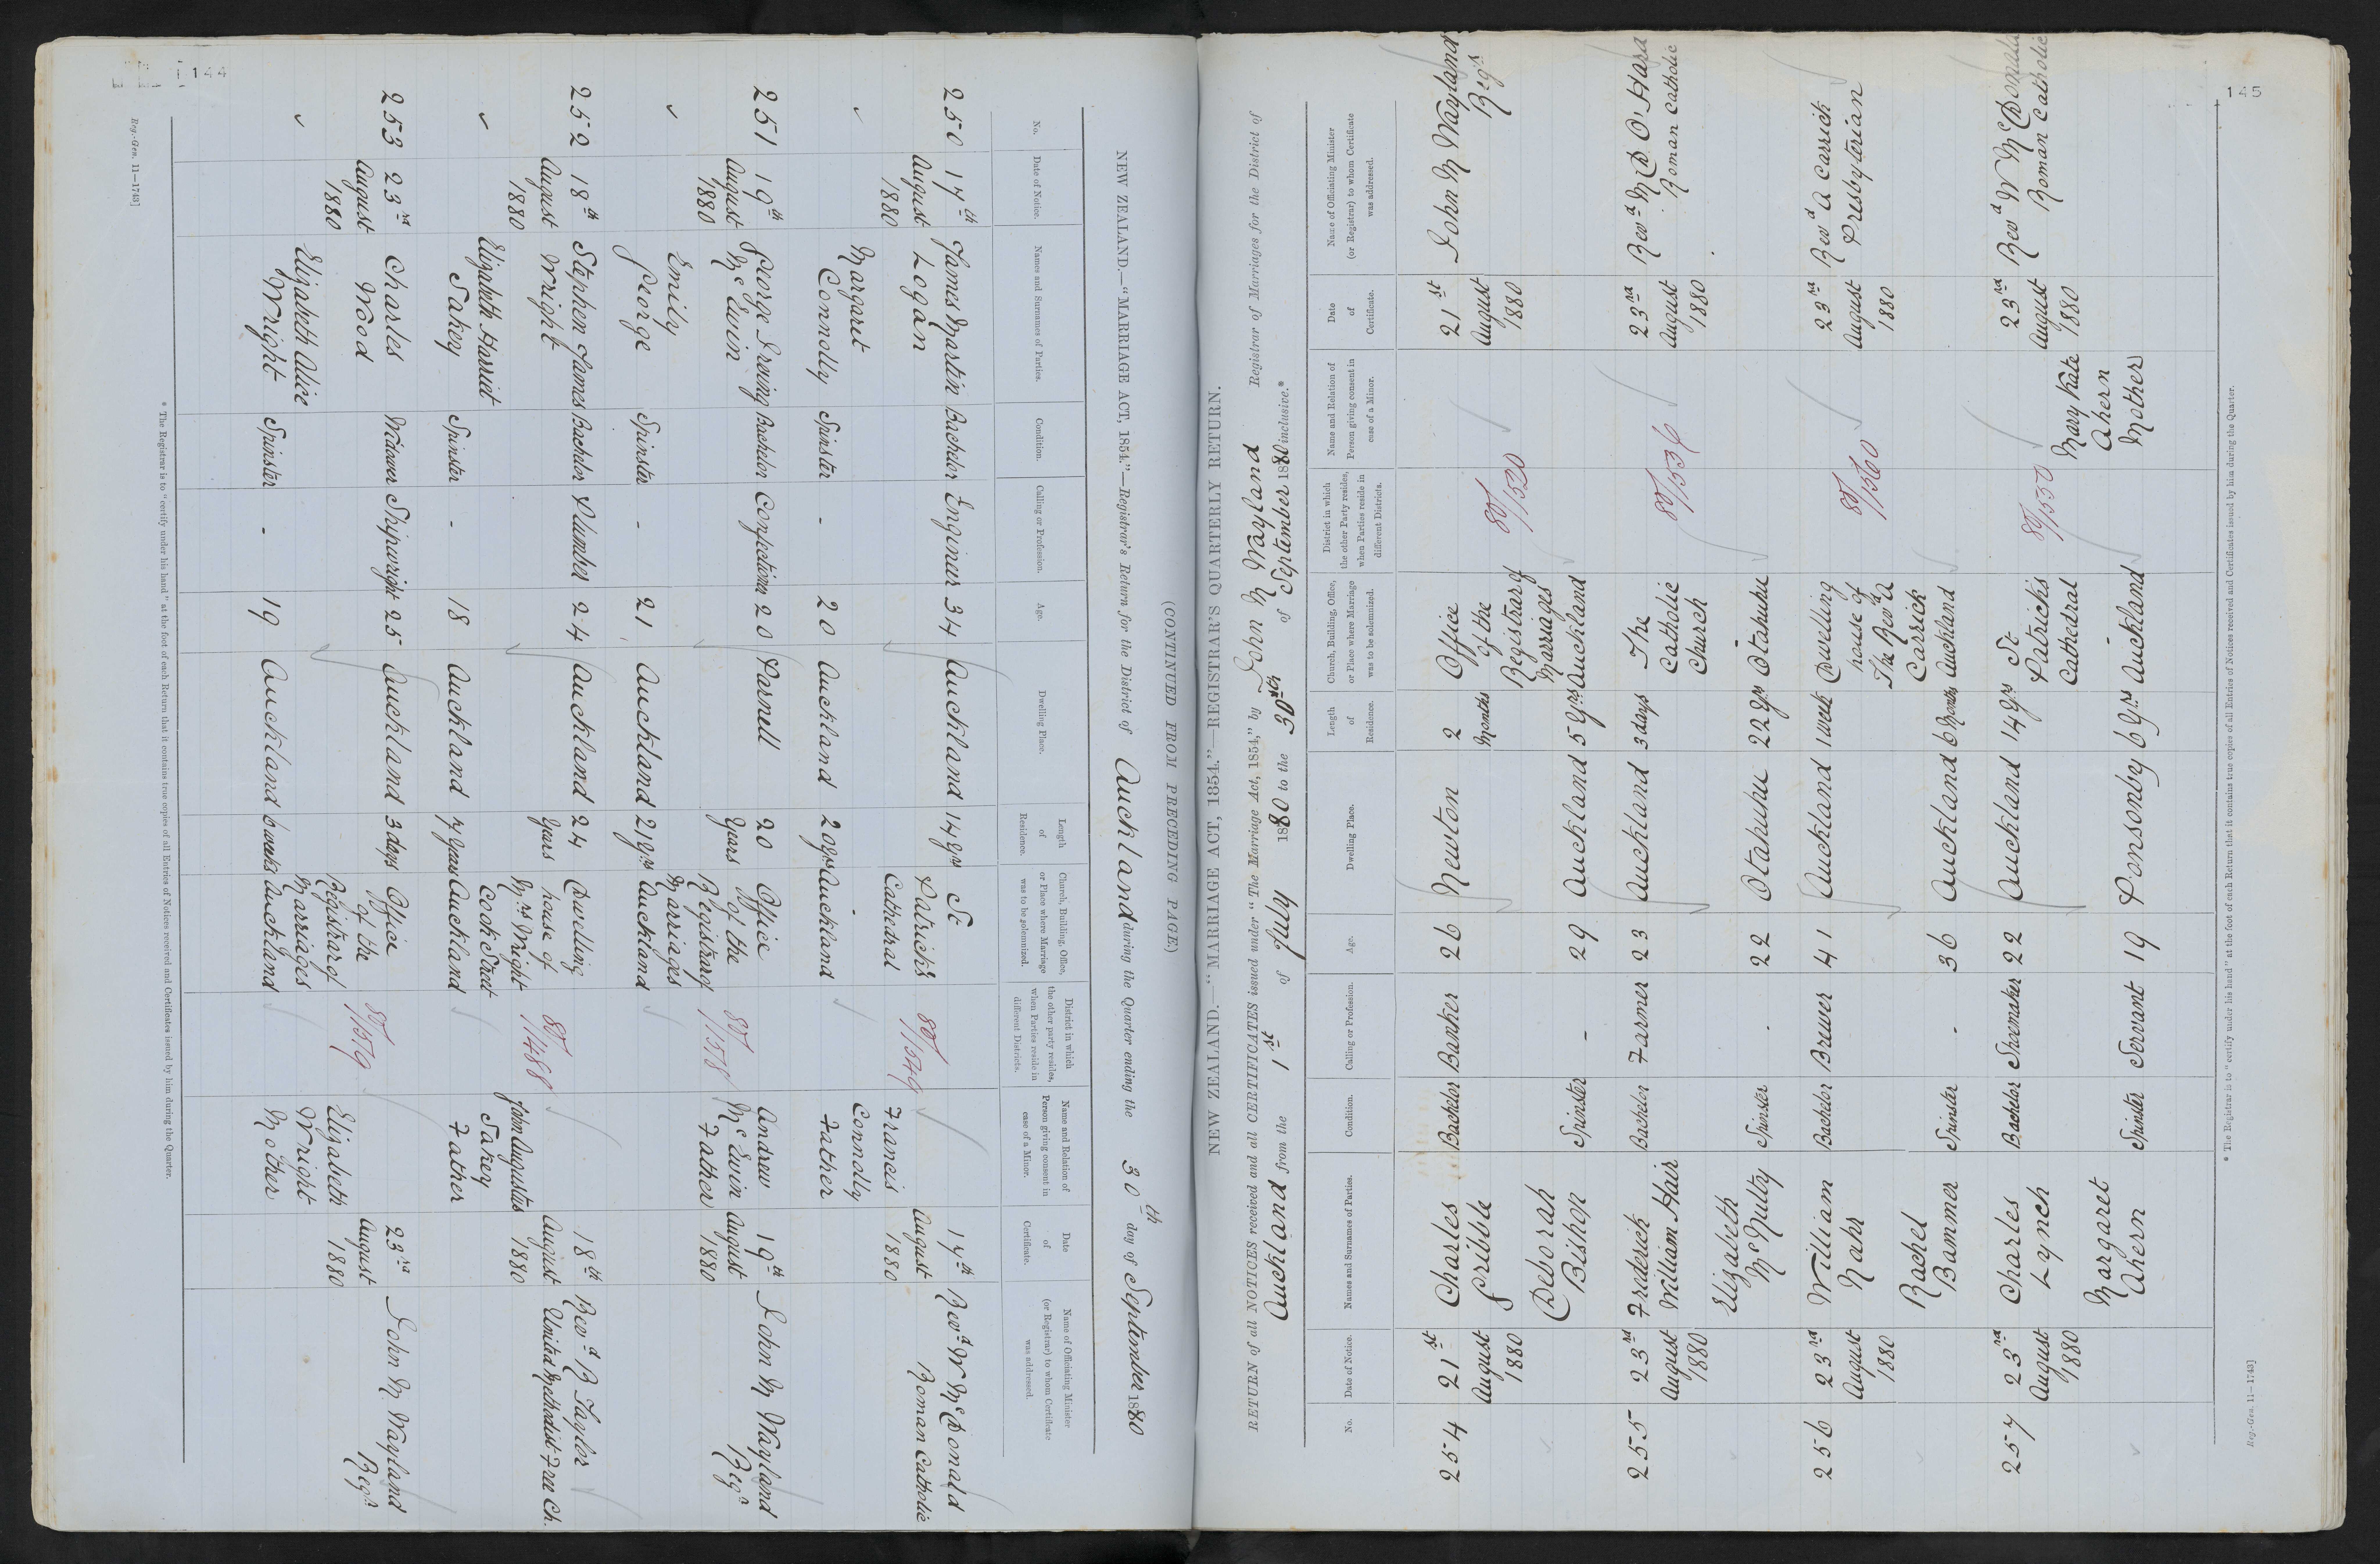 144
(CONTINUED FROM PRECEDING PAGE)
NEW ZEALAND.—"MARRIAGE ACT, 1854."—Registrar's Return for the District of Auckland during the Quarter ending the 30th day of September 1880
No.
Date of Notice.
Names and Surnames of Parties.
Condition.
Calling or Profession.
Age.
Dwelling Place.
Length of Residence.
Church, Building, Office, or Place where Marriage was to be solemnized.
District in which the other party resides, when Parties reside in different Districts.
Name and Relation of Person giving consent in case of a Minor.
Date of Certificate.
Name of Officiating Minister (or Registrar) to whom Certificate was addressed.
250 17th August 1880 James Martin Logan Bachelor Engineer 34 Auckland 14 yrs St Patrick's Cathedral 80/1549 17th August 1880 Revd W McDonald Roman Catholic
Margaret Connolly Spinster - 20 Auckland 20 yrs Auckland Francis Connolly Father
251 19th August 1880 George Irving McEwin Bachelor Confectioner 20 Parnell 20 Years Office of the Registrar of Marriages 80/1518 Andrew McEwin Father 19th August 1880 John M Wayland Regr
Emily George Spinster - 21 Auckland 21 yrs Auckland
252 18th August 1880 Stephen James Wright Bachelor Plumber 24 Auckland 24 Years Dwelling house of Mrs Wright Cook Street 80/1488 18th August 1880 Revd B Taylor United Methodist Free Ch.
Elizabeth Harriet Sakey Spinster - 18 Auckland 7 years Auckland John Augustus Sakey Father
253 23rd August 1880 Charles Wood Widower Shipwright 25 Auckland 3 days Office of the Registrar of Marriages 80/1519 23rd August 1880 John M Wayland Regr
Elizabeth Alice Wright Spinster - 19 Auckland 6 weeks Auckland Elizabeth Wright Mother
* The Registrar is to "certify under his hand" at the foot of each Return that it contains true copies of all Entries of Notices received and Certificates issued by him during the Quarter.
Reg.-Gen. 11—1743]
145
NEW ZEALAND.—"MARRIAGE ACT, 1854."—REGISTRAR'S QUARTERLY RETURN.
RETURN of all NOTICES received and all CERTIFICATES issued under "The Marriage Act, 1854," by John M Wayland Registrar of Marriages for the District of
Auckland from the 1st of July 1880 to the 30th of September 1880 inclusive.*
No.
Date of Notice.
Names and Surnames of Parties.
Condition.
Calling or Profession.
Age.
Dwelling Place.
Length of Residence.
Church, Building, Office, or Place where Marriage was to be solemnized.
District in which the other Party resides, when Parties reside in different Districts.
Name and Relation of Person giving consent in case of a Minor.
Date of Certificate.
Name of Officiating Minister (or Registrar) to whom Certificate was addressed.
254 21st August 1880 Charles Gribble Bachelor Banker 26 Newton 2 Months Office of the Registrar of Marriages 80/1520 21st August 1880 John M Wayland Regr
Deborah Bishop Spinster - 29 Auckland 5 yrs Auckland
255 23rd August 1880 Frederick William Hair Bachelor Farmer 23 Auckland 3 days The Catholic Church 80/1536 23rd August 1880 Revd M D O'Hara Roman Catholic
Elizabeth McNulty Spinster - 22 Otahuhu 22 yrs Otahuhu
256 23rd August 1880 William Nahr Bachelor Brewer 41 Auckland 1 week Dwelling house of The Revd A Carrick 80/1560 23rd August 1880 Revd A Carrick Presbyterian
Rachel Bammer Spinster - 36 Auckland 6 Months Auckland
257 23rd August 1880 Charles Lynch Bachelor Shoemaker 22 Auckland 14 yrs St Patricks Cathedral 80/1550 23rd August 1880 Revd W McDonald Roman Catholic
Margaret Ahern Spinster Servant 19 Ponsonby 6 yrs Auckland Mary Kate Ahern Mother
* The Registrar is to "certify under his hand" at the foot of each Return that it contains true copies of all Entries of Notices received and Certificates issued by him during the Quarter.
Reg.-Gen. 11—1743]